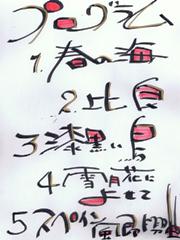 プログラム
1.春の海
2.比良
3漆黒い鳥
4雪月花に
よせて
5スペイン風